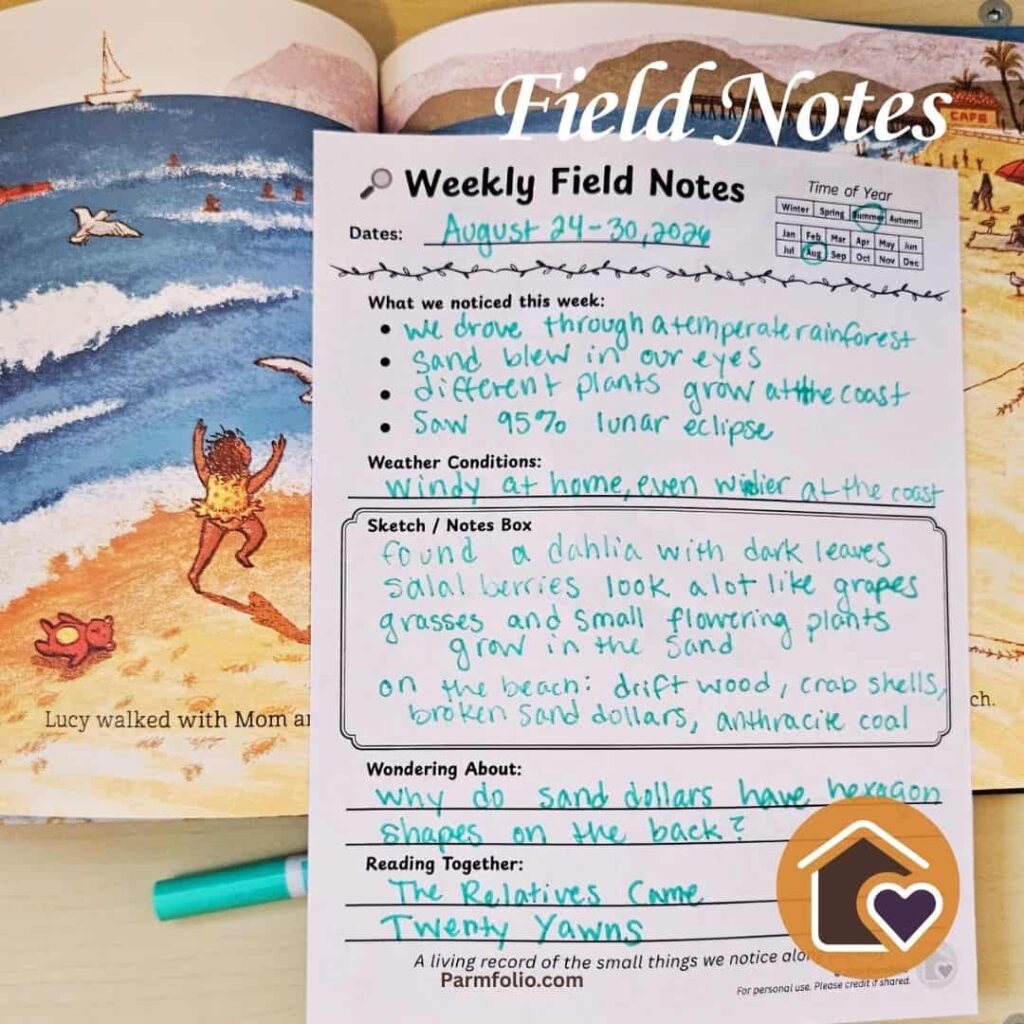 CAFE
Field Notes
Weekly Field Notes
Time of Year
Winter Spring Summer Autumn
Jan Feb Mar Apr May Jun
Jul Aug Sep Oct Nov Dec
Dates: August 24-30, 2026
What we noticed this week:
• we drove through a temperate rainforest
• sand blew in our eyes
• different plants grow at the coast
• Saw 95% lunar eclipse
Weather Conditions:
windy at home, even widier at the coast
Sketch / Notes Box
found a dahlia with dark leaves
salal berries look a lot like grapes
grasses and small flowering plants
grow in the sand
on the beach: drift wood, crab shells,
broken sand dollars, anthracite coal
Lucy walked with Mom
ch.
Wondering About:
why do sand dollars have hexagon
shapes on the back?
Reading Together:
The Relatives Came
Twenty Yawns
A living record of the small things we notice
Parmfolio.com
For personal use. Please credit if shared.